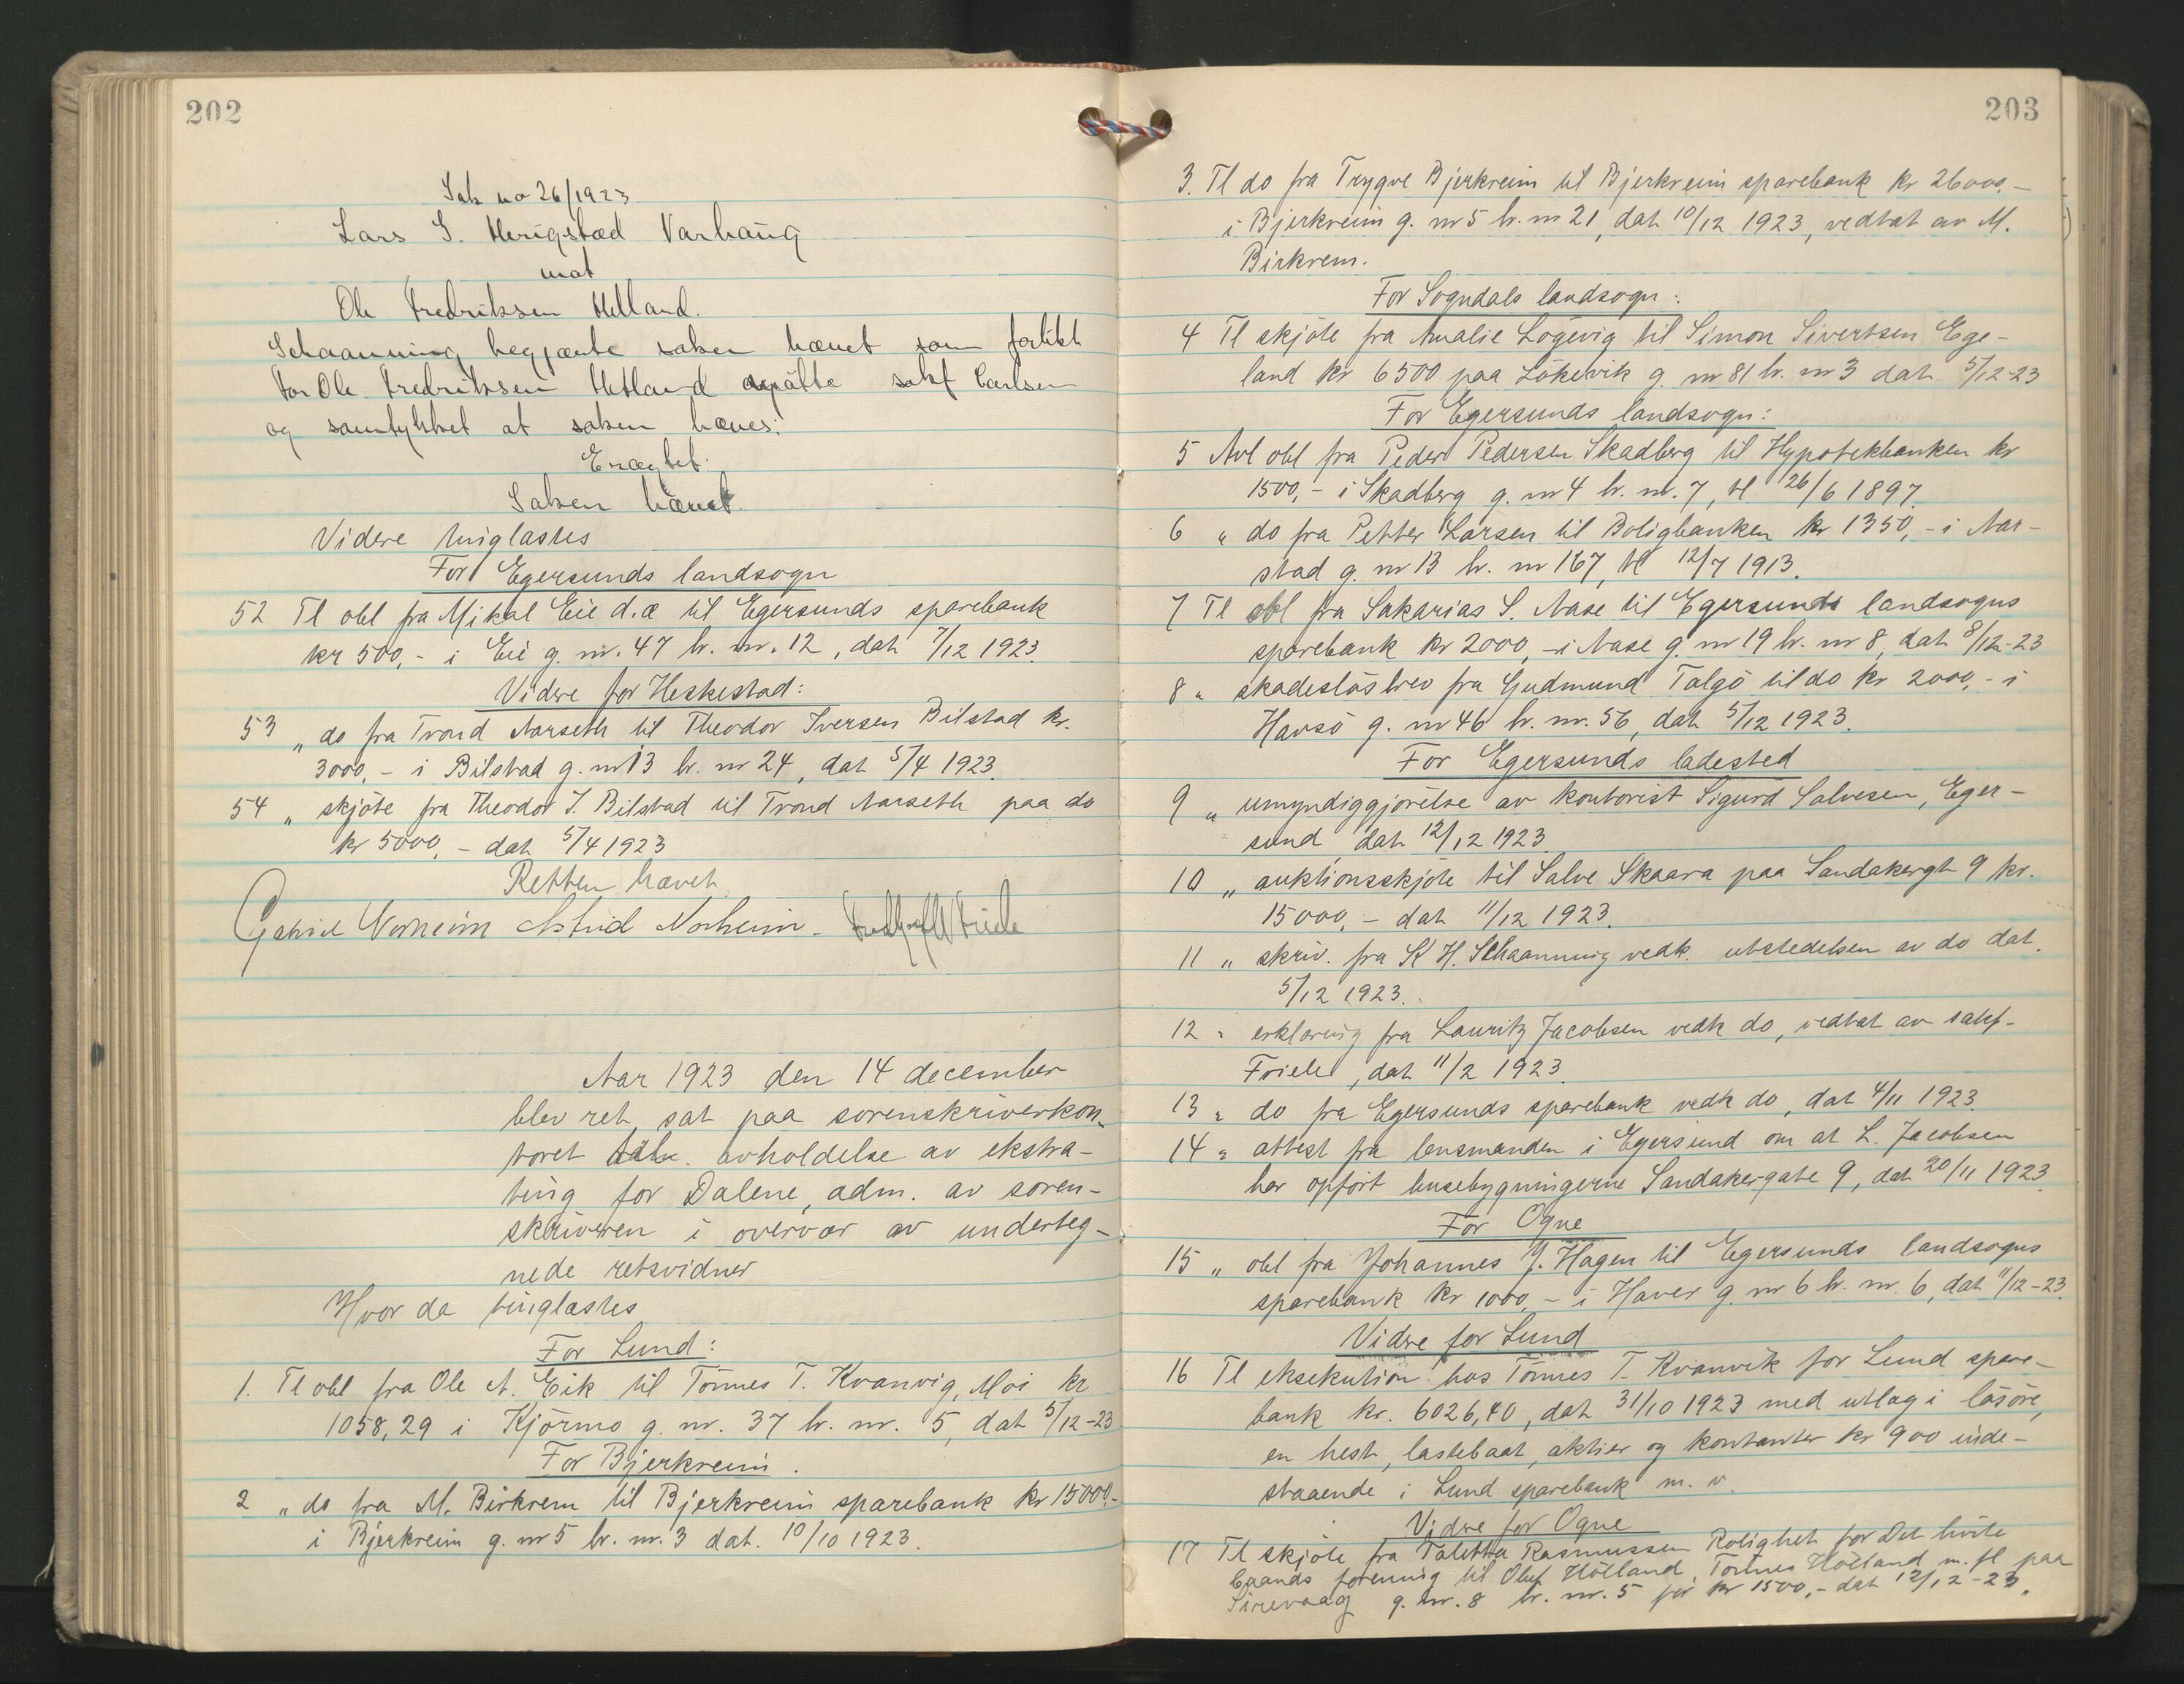 202
Sak no 26/1923
Lars S. Herigstad Varhaug
mot
Ole Fredriksen Helland.
Schaanning begjærte saken hævet som forlikt
For Ole Fredriksen Hetland møtte sakf Carlsen
og samtykket at saken hæves.
Eragtet:
Saken hævet.
Videre tinglæstes
For Egersunds landsogn
52 Tl obl fra Mikal Eie d.æ til Egersunds sparebank
kr 500,- i Eie g. nr. 47 br. nr. 12, dat 7/12 1923.
Videre for Heskestad:
53 „ do fra Trond Aarseth til Theodor Iversen Bilstad kr.
3000,- i Bilstad g. nr 13 br. nr 24, dat 5/4 1923.
54 „ skjöte fra Theodor I. Bilstad til Trond Aarseth paa do
kr 5000,- dat 5/4 1923
Retten hævet
Gabriel Norheim Astrid Norheim -
Aar 1923 den 14 december
blev ret sat paa sorenskriverkon-
toret avholdelse av ekstra-
ting for Dalene, adm. av soren-
skriveren i overvær av underteg-
nede retsvidner
Hvor da tinglæstes
For Lund:
1. Tl obl fra Ole A. Eik til Tönnes T. Kvanvig, Moi kr
1058,29 i Kjörmo g. nr. 37 br. nr. 5, dat 5/12-23
For Bjerkreim.
2 „ do fra M. Birkrem til Bjerkreim sparebank kr 15000,-
i Bjerkreim g. nr 5 br. nr. 3 dat. 10/10 1923.
203
3. Tl do fra Trygve Bjerkreim til Bjerkreim sparebank kr 26000,-
i Bjerkreim g. nr 5 br. nr 21, dat 10/12 1923, vedtat av M.
Birkrem.
For Sogndals landsogn:
4 Tl skjöte fra Amalie Lögevig til Simon Sivertsen Ege-
land kr 6500 paa Lökevik g. nr 81 br. nr 3 dat 5/12-23
For Egersunds landsogn:
5 Avl obl fra Peder Pedersen Skadberg til Hypotekbanken kr
1500,- i Skadberg g. nr 4 br. nr. 7, tl 26/6 1897.
6 „ do fra Petter Larsen til Boligbanken kr 1350,- i Aar-
stad g. nr 13 br. nr 167, tl 12/7 1913.
7 Tl obl fra Sakarias S. Aase til Egersunds landsogns
sparebank kr 2000,- i Aase g. nr 19 br. nr 8, dat 8/12-23
8 „ skadeslösbrev fra Gudmund Talgö til do kr 2000,- i
Havsö g. nr 46 br. nr. 56, dat 5/12 1923.
For Egersunds ladested
9 „ umyndiggjörelse av kontorist Sigurd Salvesen, Eger-
sund dat 12/12 1923.
10 „ auktionsskjöte til Salve Skaara paa Sandakergt 9 kr.
15000,- dat 11/12 1923.
11 „ skriv. fra K H. Schaanning vedk. utstedelsen av do dat.
5/12 1923.
12 „ erklæring fra Lauritz Jacobsen vedk do, vedtat av sakf.
Friele, dat 11/2 1923.
13 „ do fra Egersunds sparebank vedk do, dat 4/11 1923.
14 „ attest fra lensmanden i Egersund om at L. Jacobsen
har opfört husebygningerne Sandakergate 9, dat 20/11 1923.
For Ogne
15 „ obl fra Johannes J. Hagen til Egersunds landsogns
sparebank kr 1000,- i Haver g. nr 6 br. nr. 6, dat 11/12-23.
Videre for Lund
16 Tl eksekution hos Tönnes T. Kvanvik for Lund spare-
bank kr. 6026,40, dat 31/10 1923 med utlæg i lösöre,
en hest, lastebaat, aktier og kontanter kr 900 inde-
staaende i Lund sparebank m. v.
Videre for Ogne
17 Tl skjöte fra Taletta Rasmussen Rolighet for Det hvite
baands forening til Oluf Hölland, Tönnes Hölland m. fl paa
Sirevaag g. nr. 8 br. nr. 5 for kr 1500,- dat 12/12-23.